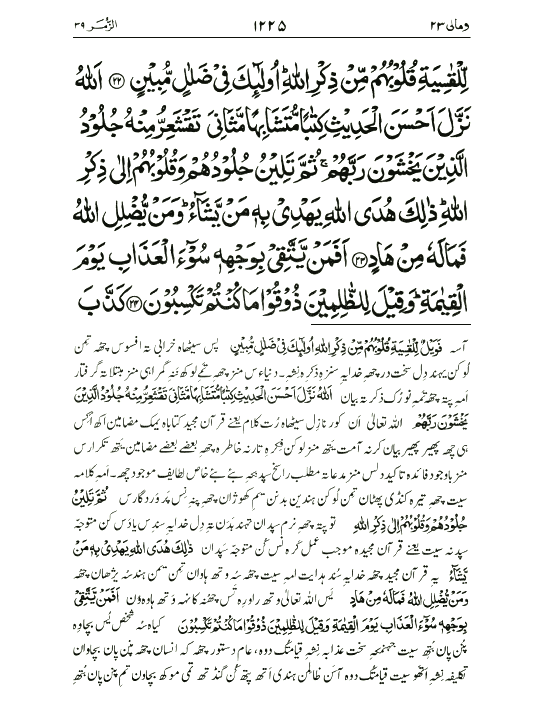 ومالی ۲۳ ۱۲۲۵ الزُّمَر ۳۹
لِّلْقٰسِيَةِ قُلُوْبُهُمْ مِّنْ ذِكْرِ اللّٰهِ ؕ اُولٰٓئِكَ فِيْ ضَلٰلٍ مُّبِيْنٍ ﴿۲۲﴾ اَللّٰهُ
نَزَّلَ اَحْسَنَ الْحَدِيْثِ كِتٰبًا مُّتَشَابِهًا مَّثَانِيَ تَقْشَعِرُّ مِنْهُ جُلُوْدُ
الَّذِيْنَ يَخْشَوْنَ رَبَّهُمْ ۚ ثُمَّ تَلِيْنُ جُلُوْدُهُمْ وَقُلُوْبُهُمْ اِلٰى ذِكْرِ
اللّٰهِ ؕ ذٰلِكَ هُدَى اللّٰهِ يَهْدِيْ بِهٖ مَنْ يَّشَآءُ ؕ وَمَنْ يُّضْلِلِ اللّٰهُ
فَمَا لَهٗ مِنْ هَادٍ ﴿۲۳﴾ اَفَمَنْ يَّتَّقِيْ بِوَجْهِهٖ سُوْٓءَ الْعَذَابِ يَوْمَ
الْقِيٰمَةِ ؕ وَقِيْلَ لِلظّٰلِمِيْنَ ذُوْقُوْا مَا كُنْتُمْ تَكْسِبُوْنَ ﴿۲۴﴾ كَذَّبَ
آسہ فَوَيْلٌ لِّلْقٰسِيَةِ قُلُوْبُهُمْ مِّنْ ذِكْرِ اللّٰهِ اُولٰٓئِكَ فِيْ ضَلٰلٍ مُّبِيْنٍ پس سیٹھاہ خرابی تہ افسوس چھہ تمن
لوکن ہندِ دل سخت در چھہ خدایہ سنزہ ذکرہ نِشہ۔ دنیاءس منز چھہ تمے لوکھ ننہِ گمراہی منز مبتلا تہ گرفتار
امہ پتہ چھہ تمہ نورُک ذکر تہ بیان اَللّٰهُ نَزَّلَ اَحْسَنَ الْحَدِيْثِ كِتٰبًا مُّتَشَابِهًا مَّثَانِيَ تَقْشَعِرُّ مِنْهُ جُلُوْدُ الَّذِيْنَ
يَخْشَوْنَ رَبَّهُمْ اللہ تعالیٰ اَن کور نازل سیٹھاہ رُت کلام یعنے قرآن مجید کتاباہ یمک مضامین اکھ اگس
ہی چھہ پھیر پھیر بیان کرنہ آمت یتھ منز لوکن فکرِہ تارنہ خاطرہ چھہ بعضے بعضے مضامین یتھ تکرارس
منز باوجود فائدہ تاکید دلس منز مدعا تہ مطلب راسخ سپدنہ چھہ بنے بنے خاص لطایف موجود چھہ۔ امہ کلامہ
سیت چھہ تیرہ کنڈی پھٹان تمن لوکن ہندین بدنن یم کھوژان چھہ پننِس مَد وَردگارس ثُمَّ تَلِيْنُ
جُلُوْدُهُمْ وَقُلُوْبُهُمْ اِلٰى ذِكْرِ اللّٰهِ تو پتہ چھہ نرم سپدان تہند بدن تہ دل خدایہ سندِس یادس کن متوجّہ
سپدنہ سیت یعنے قرآن مجیدہ موجب عمل کرنس کُن متوجّہ سپدان ذٰلِكَ هُدَى اللّٰهِ يَهْدِيْ بِهٖ مَنْ
يَّشَآءُ یہ قرآن مجید چھہ خدایہ سُند ہدایت امہ سیت چھہ سُہ وتھ ہاوان تمن یمن ہندسُہ یژھان چھہ
وَمَنْ يُّضْلِلِ اللّٰهُ فَمَا لَهٗ مِنْ هَادٍ یَس اللہ تعالیٰ وتھ راورِہ تَس چھنہ کانہہ وتھ ہاوہ ون اَفَمَنْ يَّتَّقِيْ
بِوَجْهِهٖ سُوْٓءَ الْعَذَابِ يَوْمَ الْقِيٰمَةِ وَقِيْلَ لِلظّٰلِمِيْنَ ذُوْقُوْا مَا كُنْتُمْ تَكْسِبُوْنَ کیاہ سُہ شخص یُس بچاوِہ
پنن پان بُتھِ سیت جہنمچہ سخت عذابہ نِشہ قیامتک دوہ، عام دستور چھہ کہ انسان چھہ پنن پان بچاوان
تکلیفہ نِشہ اَتھو سیت قیامتک دوہ آسَن ظالمن ہندی اَتھ پتھ کُن گنڈتھ تمی موکھ بچاون تم پنن پان بُتھِ